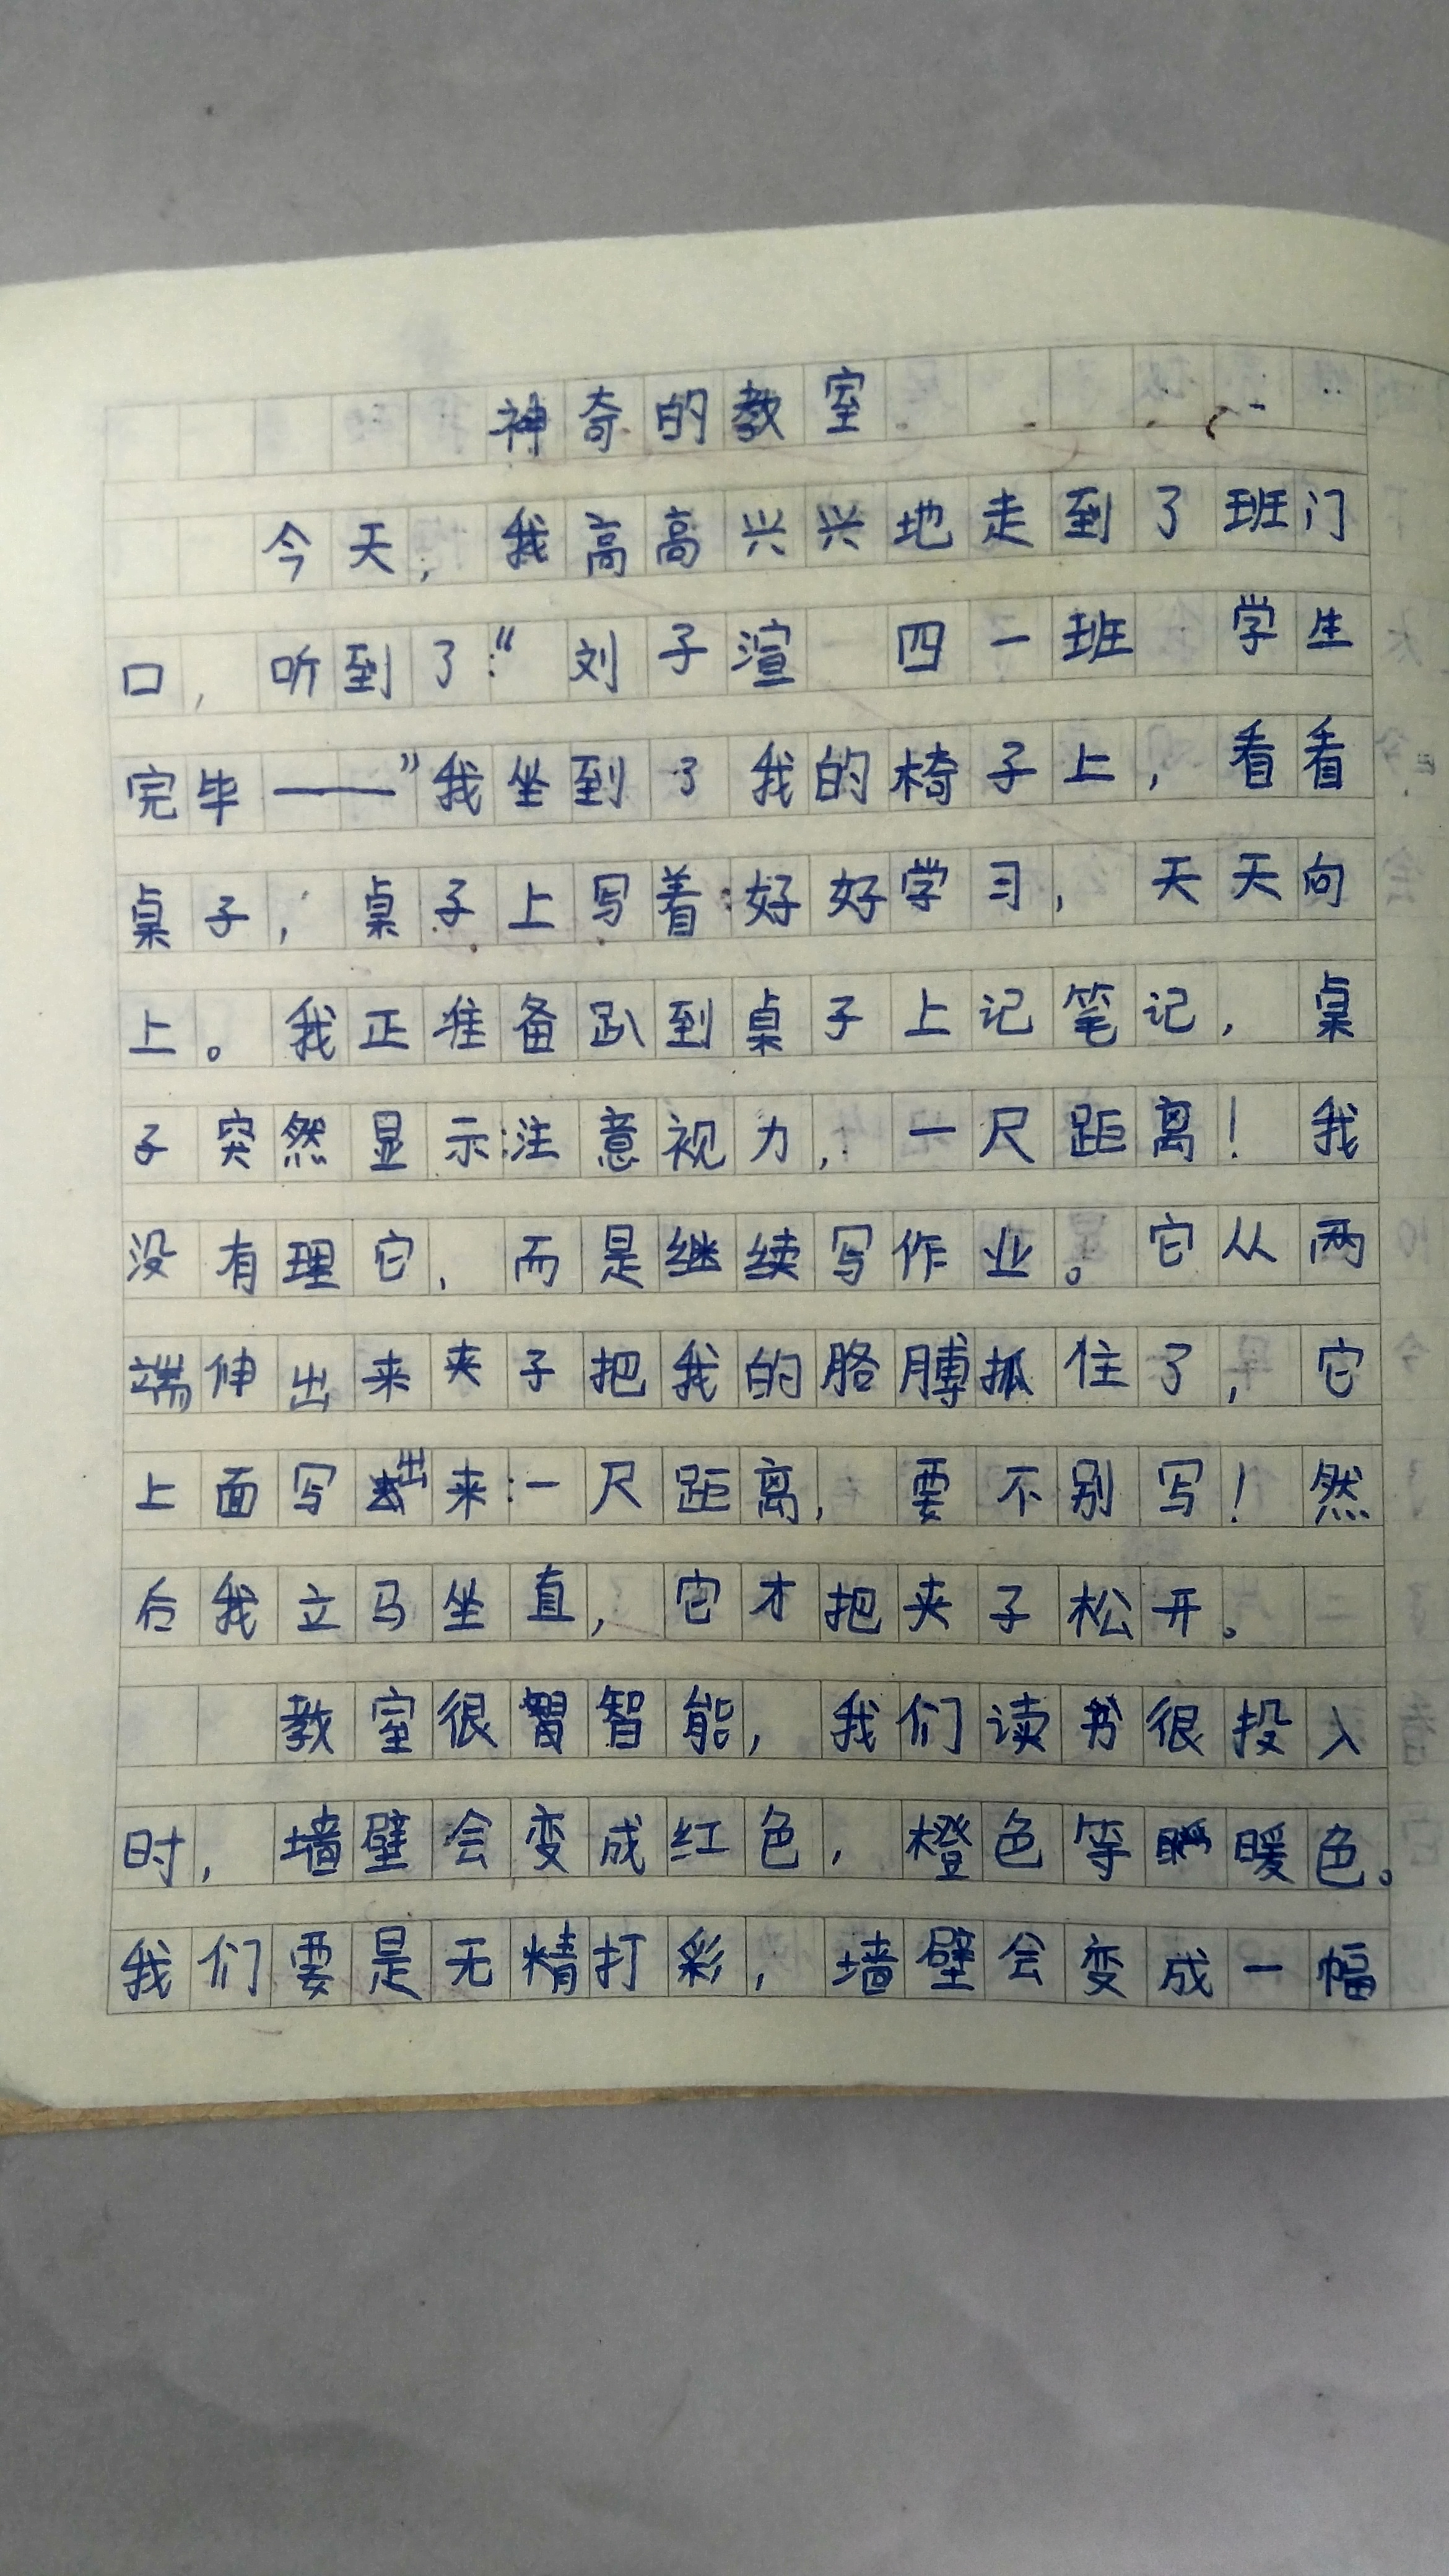 神奇的教室
今天，我高高兴兴地走到了班门
口，听到了：“刘子渲 四一班 学生
完毕——”我坐到了我的椅子上，看看
桌子，桌子上写着：好好学习，天天向
上。我正准备趴到桌子上记笔记，桌
子突然显示：注意视力，一尺距离！我
没有理它，而是继续写作业。它从两
端伸出来夹子把我的胳膊抓住了，它
上面写出来：一尺距离，要不别写！然
后我立马坐直，它才把夹子松开。
教室很智能，我们读书很投入
时，墙壁会变成红色，橙色等暖色。
我们要是无精打彩，墙壁会变成一幅